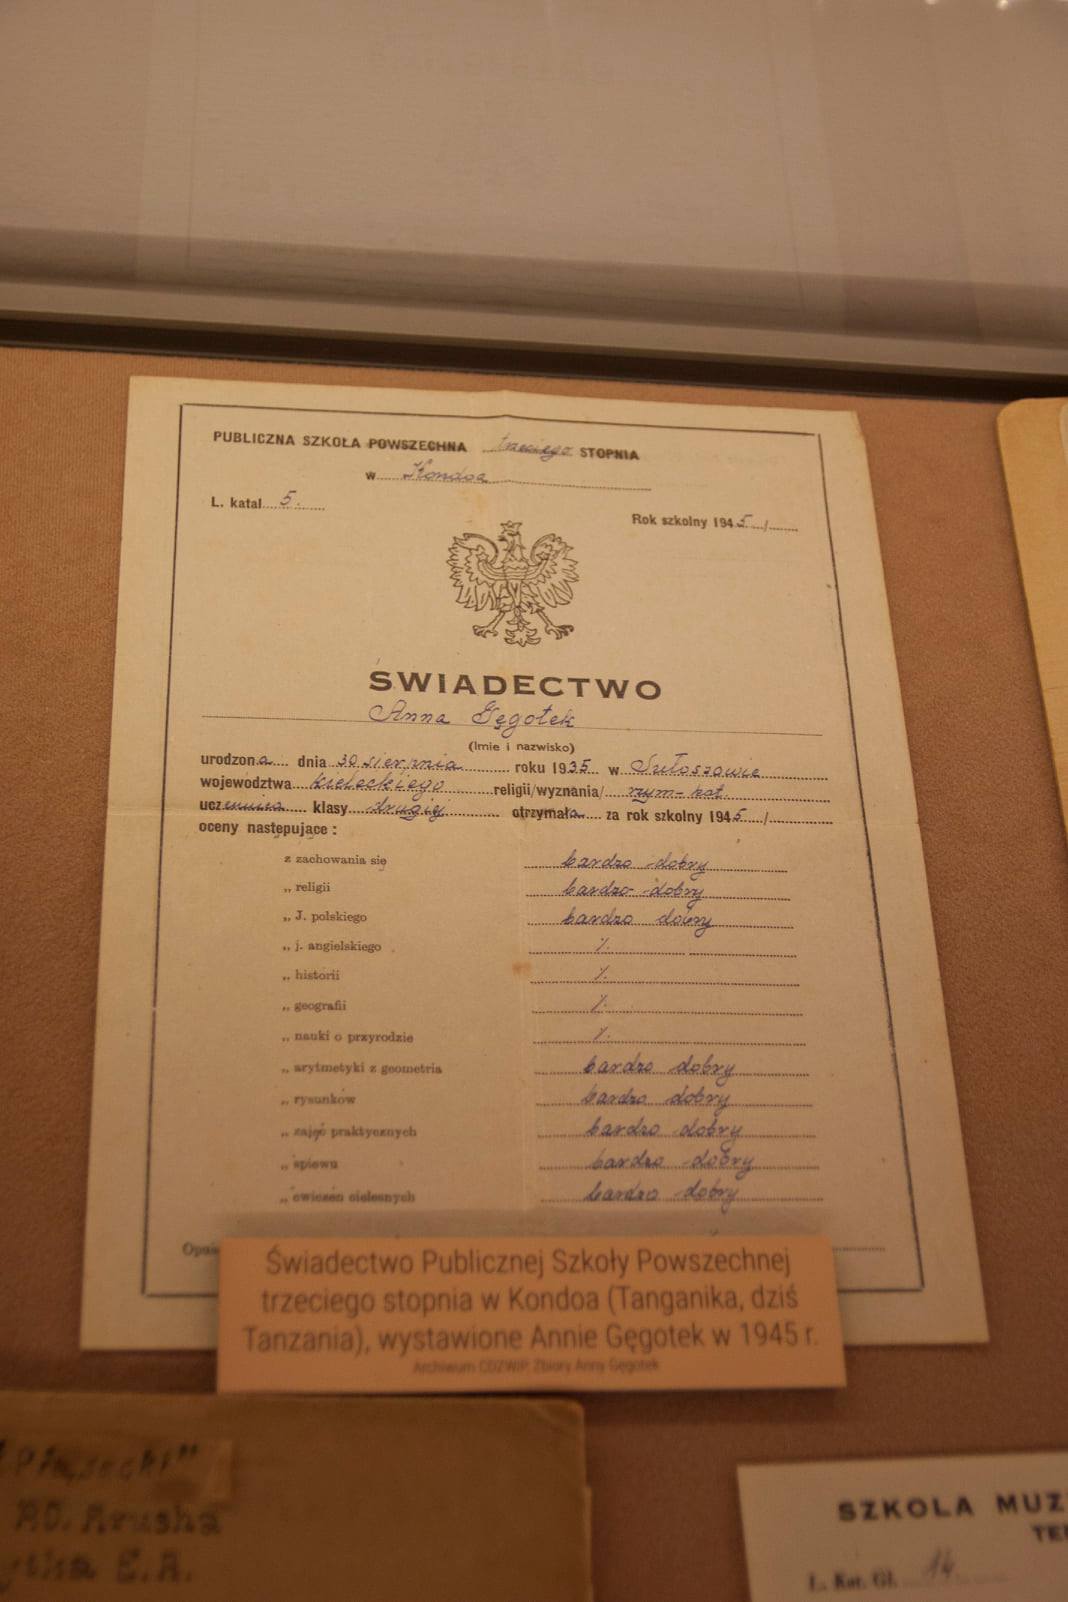 PUBLICZNA SZKOŁA POWSZECHNA trzeciego STOPNIA
w Kondoa
L. katal. 5.
Rok szkolny 1945 /
ŚWIADECTWO
Anna Gęgotek
(Imie i nazwisko)
urodzona dnia 30 sierpnia roku 1935 w Sułoszowie
województwa kieleckiego religii/wyznania/ rzym-kat.
uczennica klasy drugiej otrzymała za rok szkolny 1945 /
oceny następujące :
z zachowania się bardzo dobry
„ religii bardzo dobry
„ J. polskiego bardzo dobry
„ j. angielskiego /.
„ historii /.
„ geografii /.
„ nauki o przyrodzie /.
„ arytmetyki z geometria bardzo dobry
„ rysunkow bardzo dobry
„ zajęć praktycznych bardzo dobry
„ śpiewu bardzo dobry
„ ćwiczeń cielesnych bardzo dobry
Świadectwo Publicznej Szkoły Powszechnej
trzeciego stopnia w Kondoa (Tanganika, dziś
Tanzania), wystawione Annie Gęgotek w 1945 r.
Archiwum CDZWiP, Zbiory Anny Gęgotek
P.O. Arusha
E.A.
SZKOLA MUZ
TE
L. Kat. Gl. 14